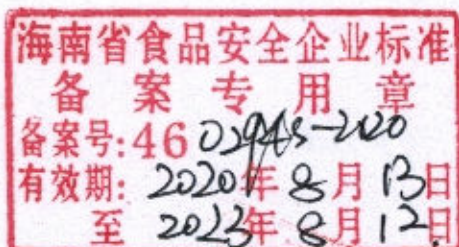 海南省食品安全企业标准
备案专用章
备案号:46 0294S-2020
有效期: 2020年8月13日
至 2023年8月12日